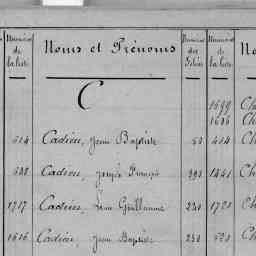 Numéros de la liste Noms et Prénoms Numéros des Séries Numéros de la liste No
C
1699 Ch
1686 Ch
614 Cadieu, Jean Baptiste 404 Ch
Cadieu, Joseph François 1441 Ch
1717 Cadieu, Guillaume 230 1721 Ch
1616 Cadieu, Jean Baptiste 230 Ch